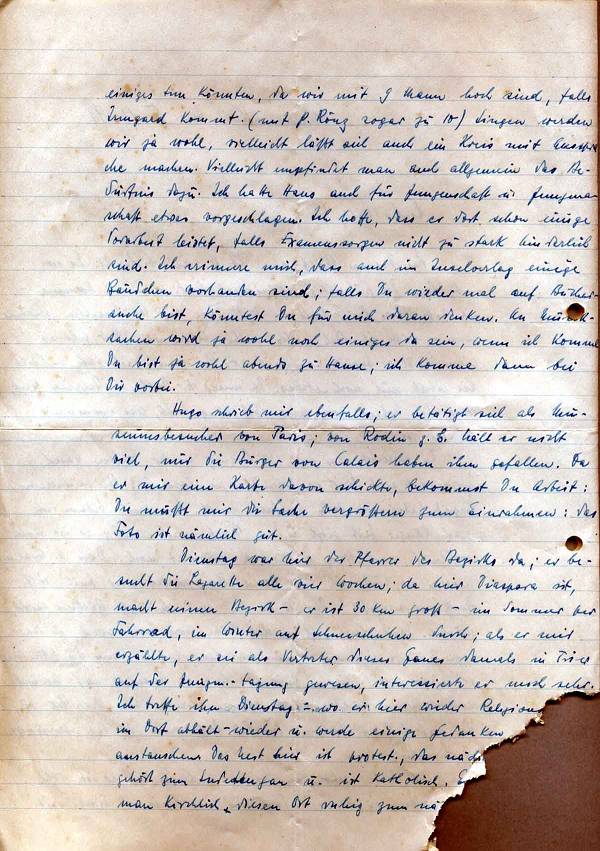 einiges tun könnten, da wir mit 9 Mann hoch sind, falls
Irmgard kommt. (mit P. Röng sogar zu 10) Singen werden
wir ja wohl, vielleicht läßt sich auch ein Kreis mit
che machen. Vielleicht empfindet man auch allgemein das Be-
dürfnis dazu. Ich hatte Hans auch für Jungenschaft u. Jungma-
schaft etwas vorgeschlagen. Ich hoffe, dass er dort schon einige
Vorarbeit leistet, falls Examenssorgen nicht zu stark hinderlich
sind. Ich erinnere mich, dass auch im Inselverlag einige
Bändchen vorhanden sind; falls Du wieder mal auf Bücher-
suche bist, könntest Du für mich daran denken. An Musik-
sachen wird ja wohl noch einiges da sein, wenn ich komme
Du bist ja wohl abends zu Hause; ich komme dann bei
Dir vorbei.
Hugo schrieb mir ebenfalls; er betätigt sich als Mu-
seumsbesucher von Paris; von Rodin z. B. hält er nicht
viel, nur die Bürger von Calais haben ihm gefallen. Da
er mir eine Karte davon schickte, bekommst Du Arbeit:
Du mußt mir die Sache vergrößern zum Einrahmen: das
Foto ist nämlich gut.
Dienstag war hier der Pfarrer des Bezirks da; er be-
sucht die Lazarette alle vier Wochen; da hier Diaspora ist,
macht seinen Bezirk - er ist 30 km groß - im Sommer per
Fahrrad, im Winter auf Schneeschuhen durch; als er mir
erzählte, er sei als Vertreter dieses Gaues damals in Trier
auf der Jungm.-tagung gewesen, interessierte er mich sehr.
Ich treffe ihn Dienstag - wo er hier wieder Religions
im Dort abhält - wieder u. werde einige Gedanken
austauschen. Das Nest hier ist protest., das näch
gehört zum Sudetengau u. ist katholisch.
man kirchlich diesen Ort ruhig zum nä